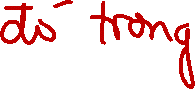 đó trong